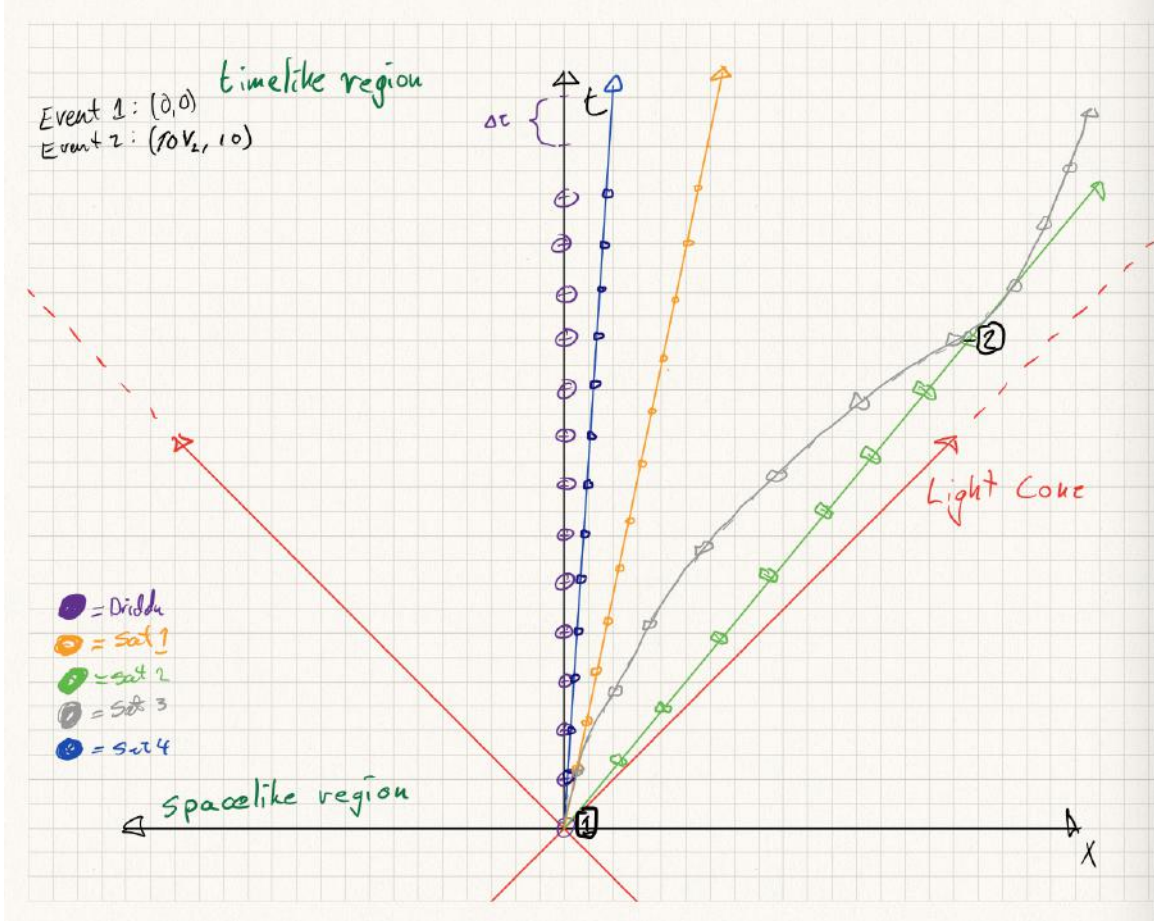 timelike region
Event 1: (0,0)
Event 2: (10V₂, 10)
t
Δτ
2
Light Cone
= Driddu
= Sat 1
= Sat 2
= Sat 3
= Sat 4
spacelike region
1
X